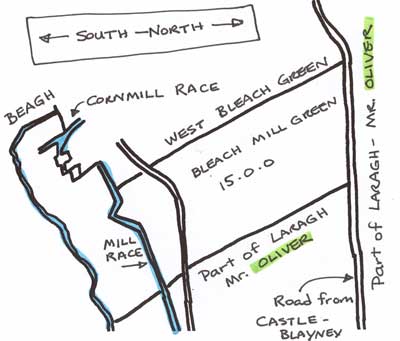 SOUTH - NORTH
CORNMILL RACE
BEAGH
WEST BLEACH GREEN
BLEACH MILL GREEN
15.0.0
MILL
RACE
Part of LARAGH
Mr. OLIVER
Part of LARAGH - MR. OLIVER
Road from
CASTLE-
BLAYNEY